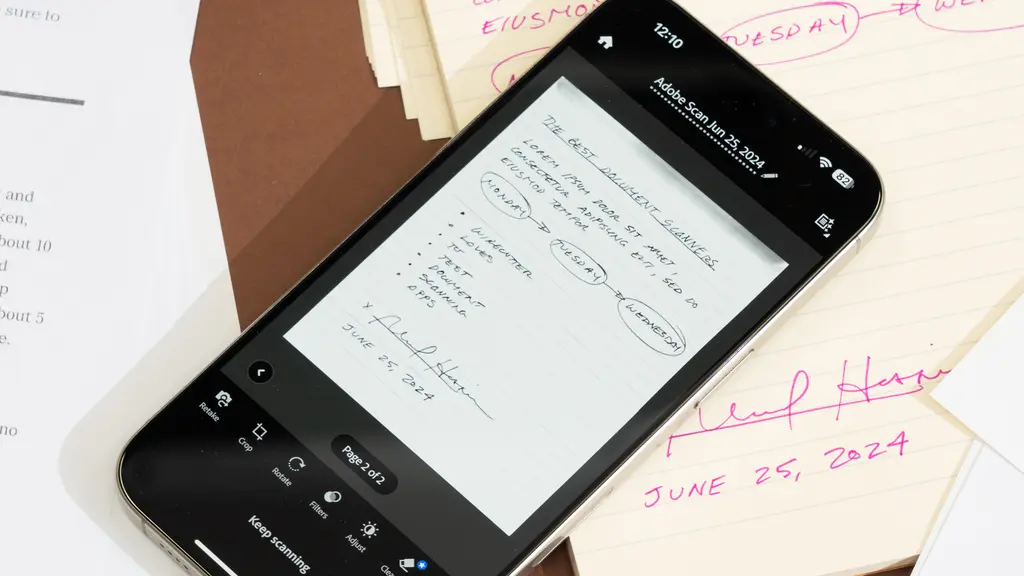 sure to
and
ken,
bout 10
d
p
bout 5
e.
no
EIUSMOD
TUESDAY
12:10
82
Adobe Scan Jun 25, 2024
THE BEST DOCUMENT SCANNERS
LOREM IPSUM DOLOR SIT AMET,
CONSECTETUR ADIPISCING ELIT, SED DO
EIUSMOD TEMPOR
MONDAY → TUESDAY → WEDNESDAY
• WIRECUTTER
• LOVES
• TO
• TEST
• DOCUMENT
• SCANNING
• APPS
x
JUNE 25, 2024
Page 2 of 2
Retake
Crop
Rotate
Filters
Adjust
Clea
Keep scanning
JUNE 25, 2024